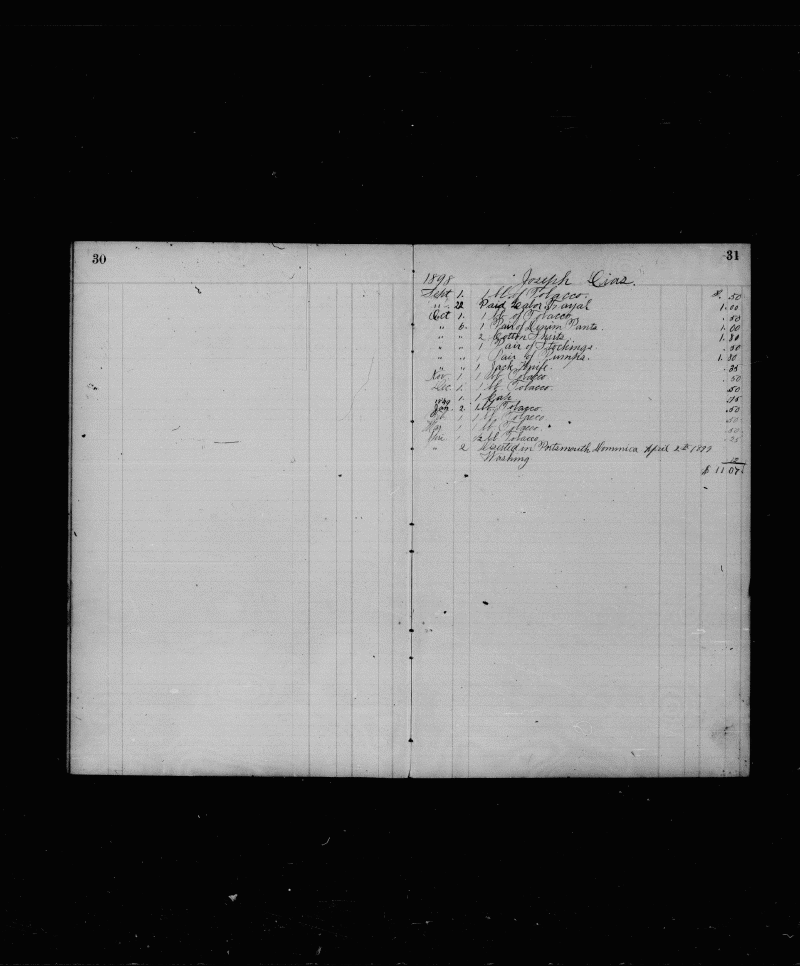 30
31
1898 Joseph Dias.
Sept 1. 1 lb of Tobacco. $ .50
" 22 Paid Fayal 1.00
Oct 1. 1 lb of Tobacco .50
" 6. 1 Pair of Denim Pants. 1.00
" " 2 Cotton Shirts 1.80
" " 1 Pair of Stockings .50
" " 1 Pair of Pumps. 1.80
" " 1 Jack Knife .35
Nov. 1 1 lb Tobacco .50
Dec 1. 1 lb Tobacco. .50
" 1. 1 .75
1899
Jan. 2. 1 lb Tobacco. .50
Feb. 1 1 lb Tobacco .50
Mar 1 1 lb Tobacco. .50
1 ½ lb Tobacco .25
" 2 Deserted in Portsmouth Dominica April 2nd 1899
Washing
$ 11 07